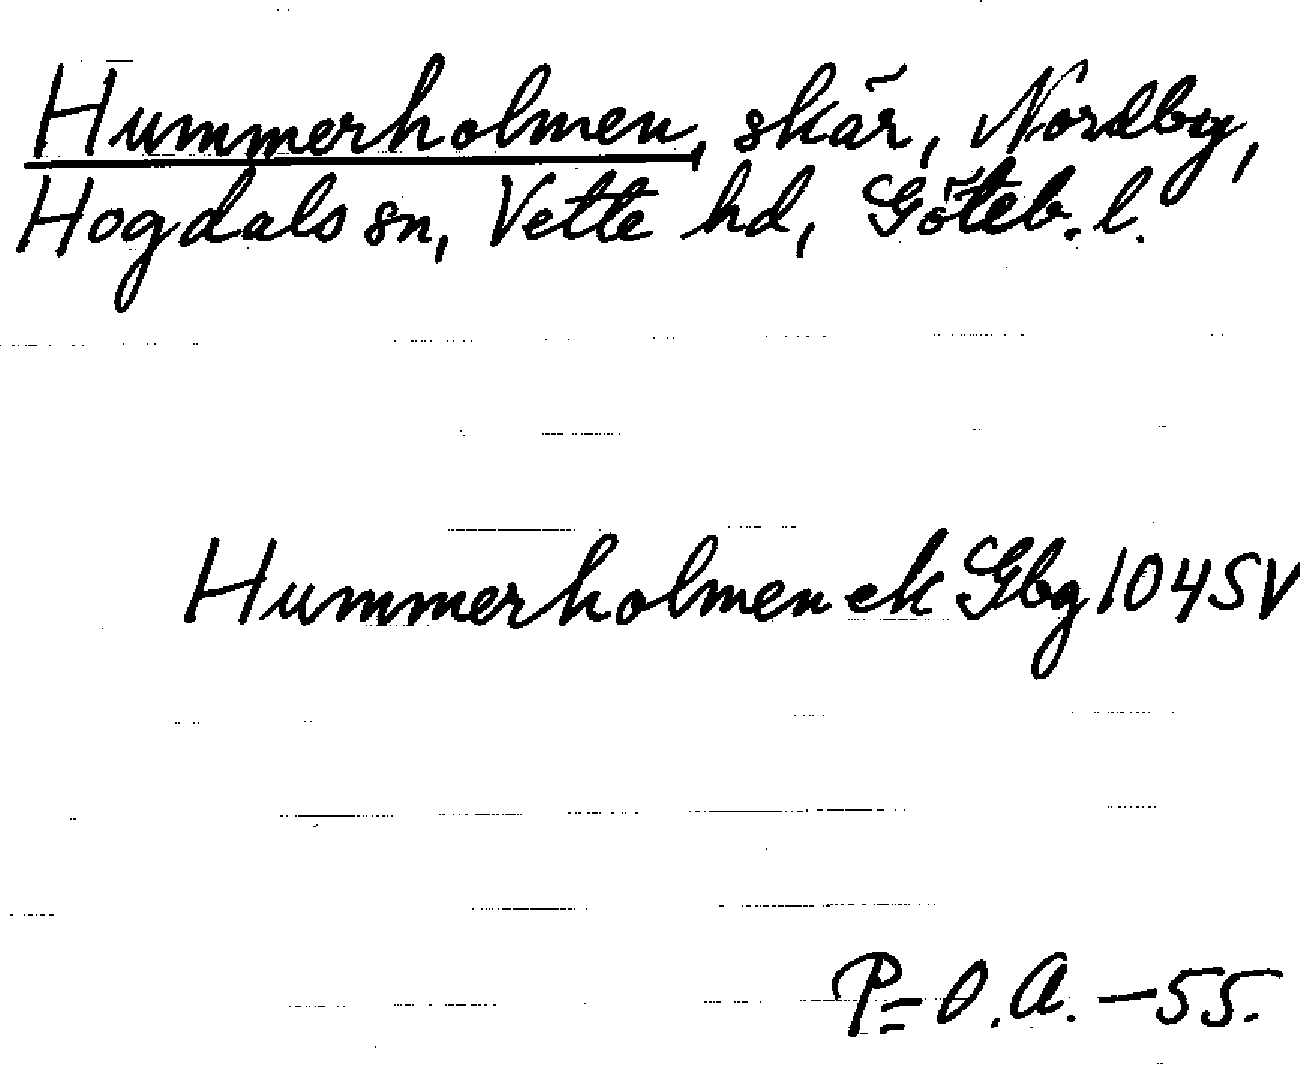 Hummerholmen, skär, Nordby,
Hogdals sn, Vette hd, Göteb. l.
Hummerholmen ek Gbg 104 SV
P=O.A. -55.